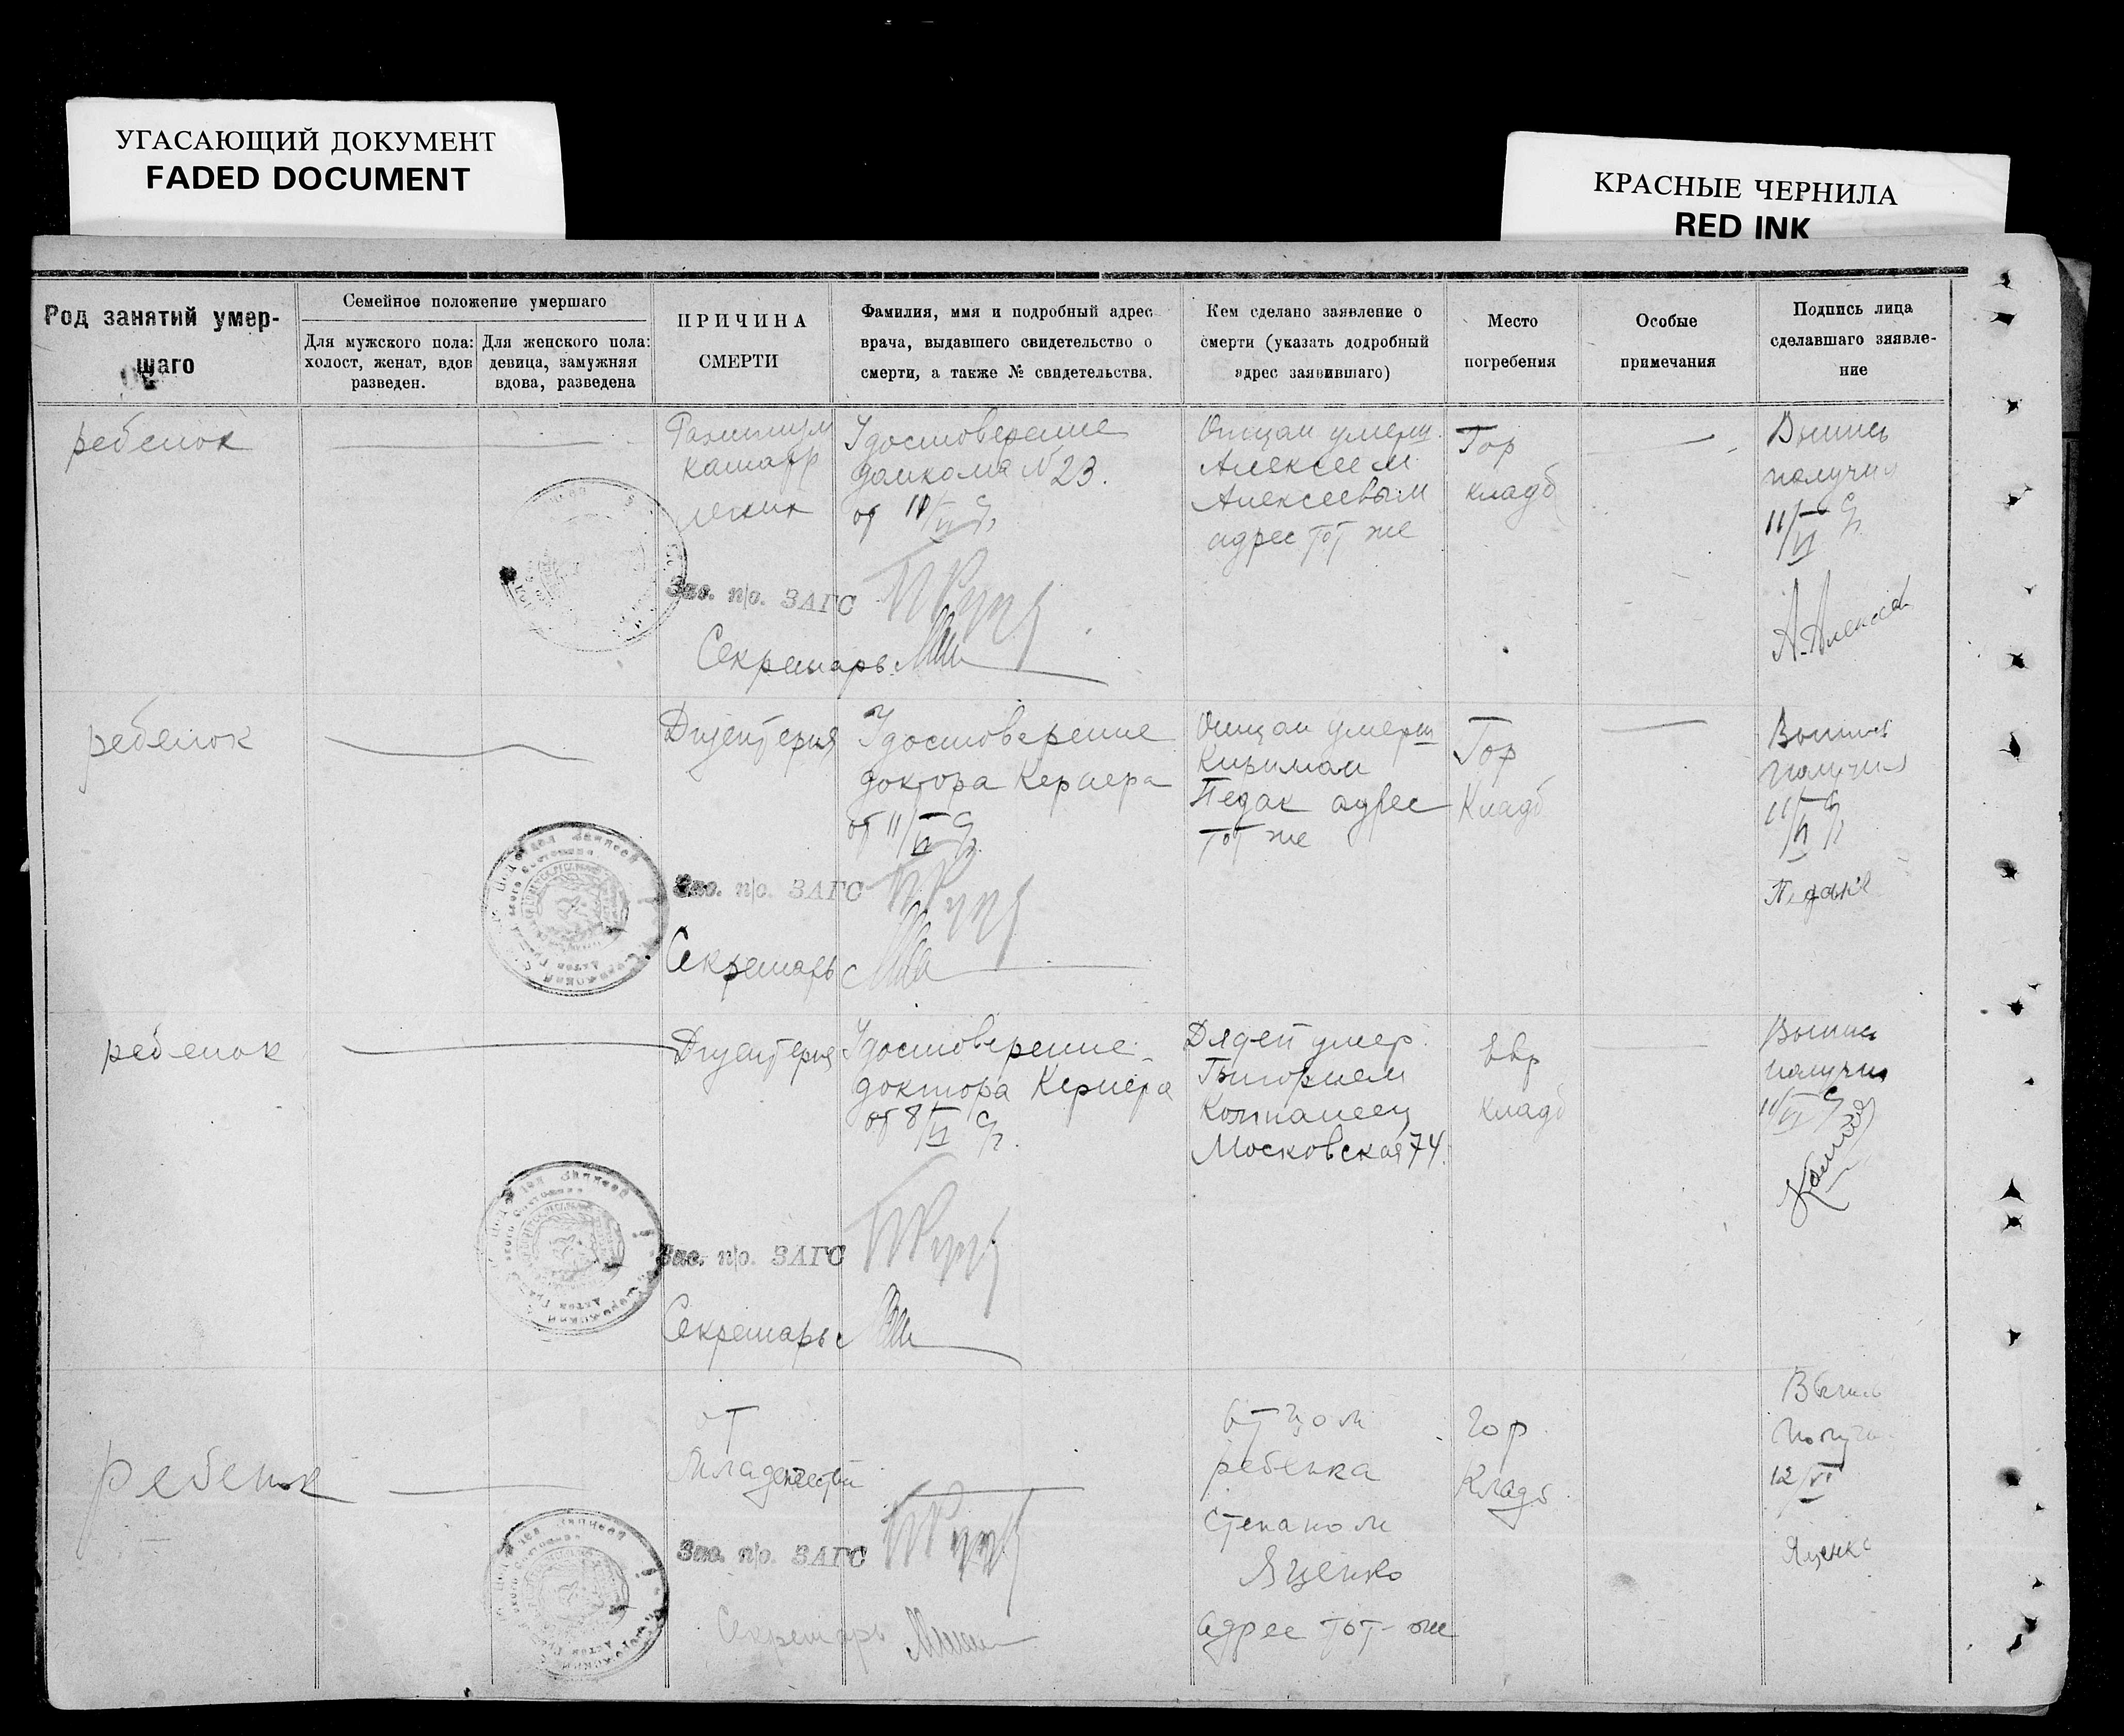 УГАСАЮЩИЙ ДОКУМЕНТ
FADED DOCUMENT
КРАСНЫЕ ЧЕРНИЛА
RED INK
Род занятий умер-
шаго
Семейное положение умершаго
Для мужского пола:
холост, женат, вдов
разведен.
Для женского пола:
девица, замужняя
вдова, разведена
ПРИЧИНА
СМЕРТИ
Фамилия, имя и подробный адрес
врача, выдавшего свидетельство о
смерти, а также № свидетельства.
Кем сделано заявление о
смерти (указать додробный
адрес заявившаго)
Место
погребения
Особые
примечания
Подпись лица
сделавшаго заявле-
ние
ребенок
катарр
легких
Удостоверение
домкома N 23.
от 11/VI
Отцом умерш.
Алексеем
Алексеевым
адрес тот же
Гор
кладб
Выпись
получил
11/VI
А. Алексеев
Зав. п/о. ЗАГС
Секретарь
ребенок
Дизентерия
Удостоверение
доктора Кернера
от 11/VI
Отцом умерш
Педак адрес
тот же
Гор
Кладб
Выпись
получил
11/VI
Зав. п/о. ЗАГС
Секретарь
ребенок
Дизентерия
Удостоверение
доктора Кернера
от 8/VI
Дядей умер.
Григорием
Компанеец
Московская 74.
Евр
кладб
Выпись
получил
11/VI
Зав. п/о. ЗАГС
Секретарь
ребенок
от
Младенчества
отцом
ребенка
Степаном
Яценко
адрес тот-же
гор
Кладб.
Выпись
Получил
12/VI
Яценко
Зав. п/о. ЗАГС
Секретарь